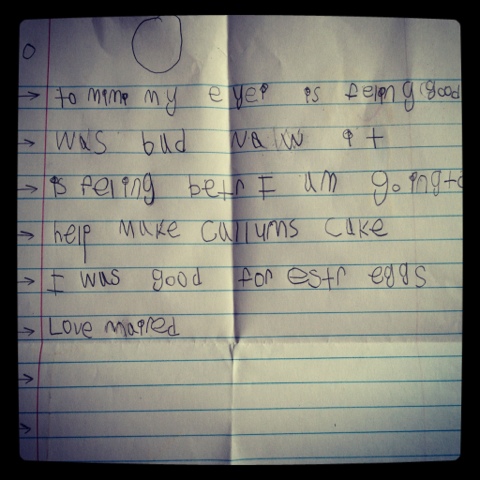 to mime my eyei is feling good
was bad naw it
is feling betr I am going to
help make callums cake
I was good for estr eggs
Love maired